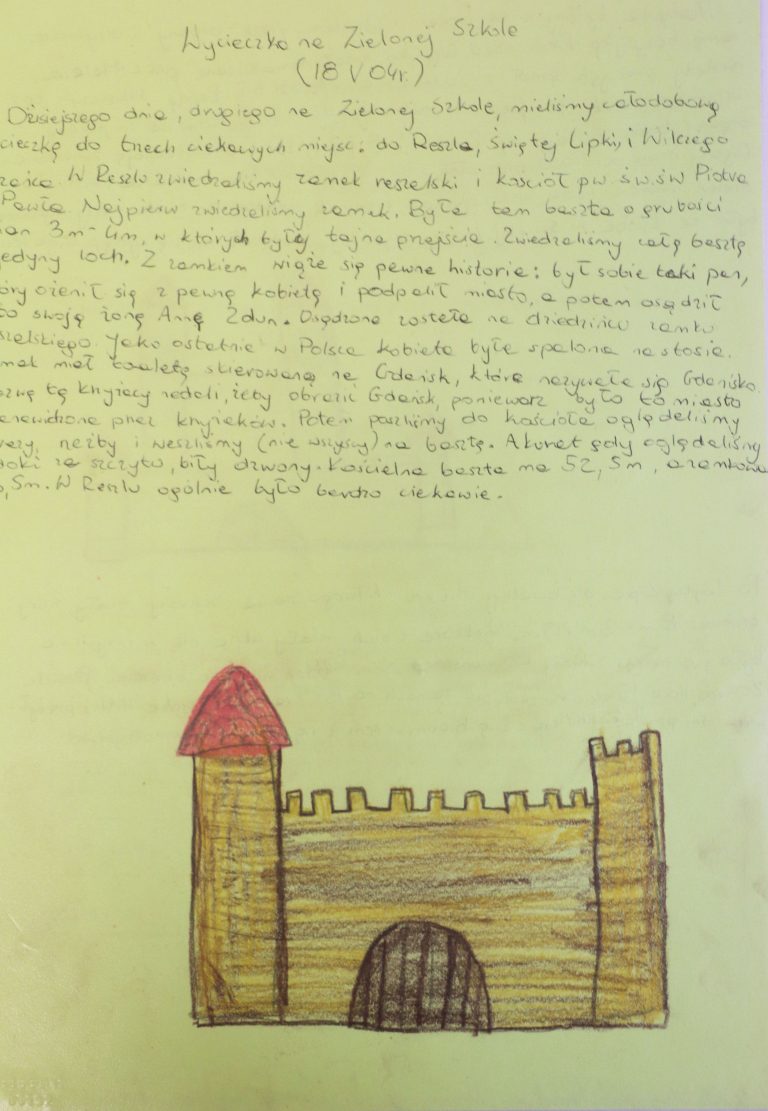 Wycieczka na Zielonej Szkole
(18 V 04r.)
Dzisiejszego dnia, drugiego na Zielonej Szkole, mieliśmy całodobową
cieczkę do trzech ciekawych miejsc: do Reszla, Świętej Lipki, i Wilczego
W Reszlu zwiedzaliśmy zamek reszelski i kościół pw. św. św Piotra
Pawła Najpierw zwiedzaliśmy zamek. Była tam baszta o grubości
3m-4m, w których były tajne przejścia. Zwiedzaliśmy całą basztę
jedyny loch. Z zamkiem wiąże się pewna historia: był sobie taki pan,
óry ożenił się z pewną kobietą i podpalił miasto, a potem osądził
o swoją żonę Annę Zdun. Osądzona została na dziedzińcu zamku
szelskiego. Jako ostatnia w Polsce kobieta była spalona na stosie.
mek miał toaletę skierowaną na Gdańsk, która nazywała się Gdańsko.
zwę tą knyżacy nadali, żeby obrazić Gdańsk, ponieważ było to miasto
enawidzone przez knyżaków. Potem poszliśmy do kościoła oglądaliśmy
rzeźby i weszliśmy (nie wszyscy) na basztę. Akurat gdy oglądaliśmy
doki ze szczytu, biły dzwony. Kościelna baszta ma 52,5m, a zamkowa
,5m. W Reszlu ogólnie było bardzo ciekawie.